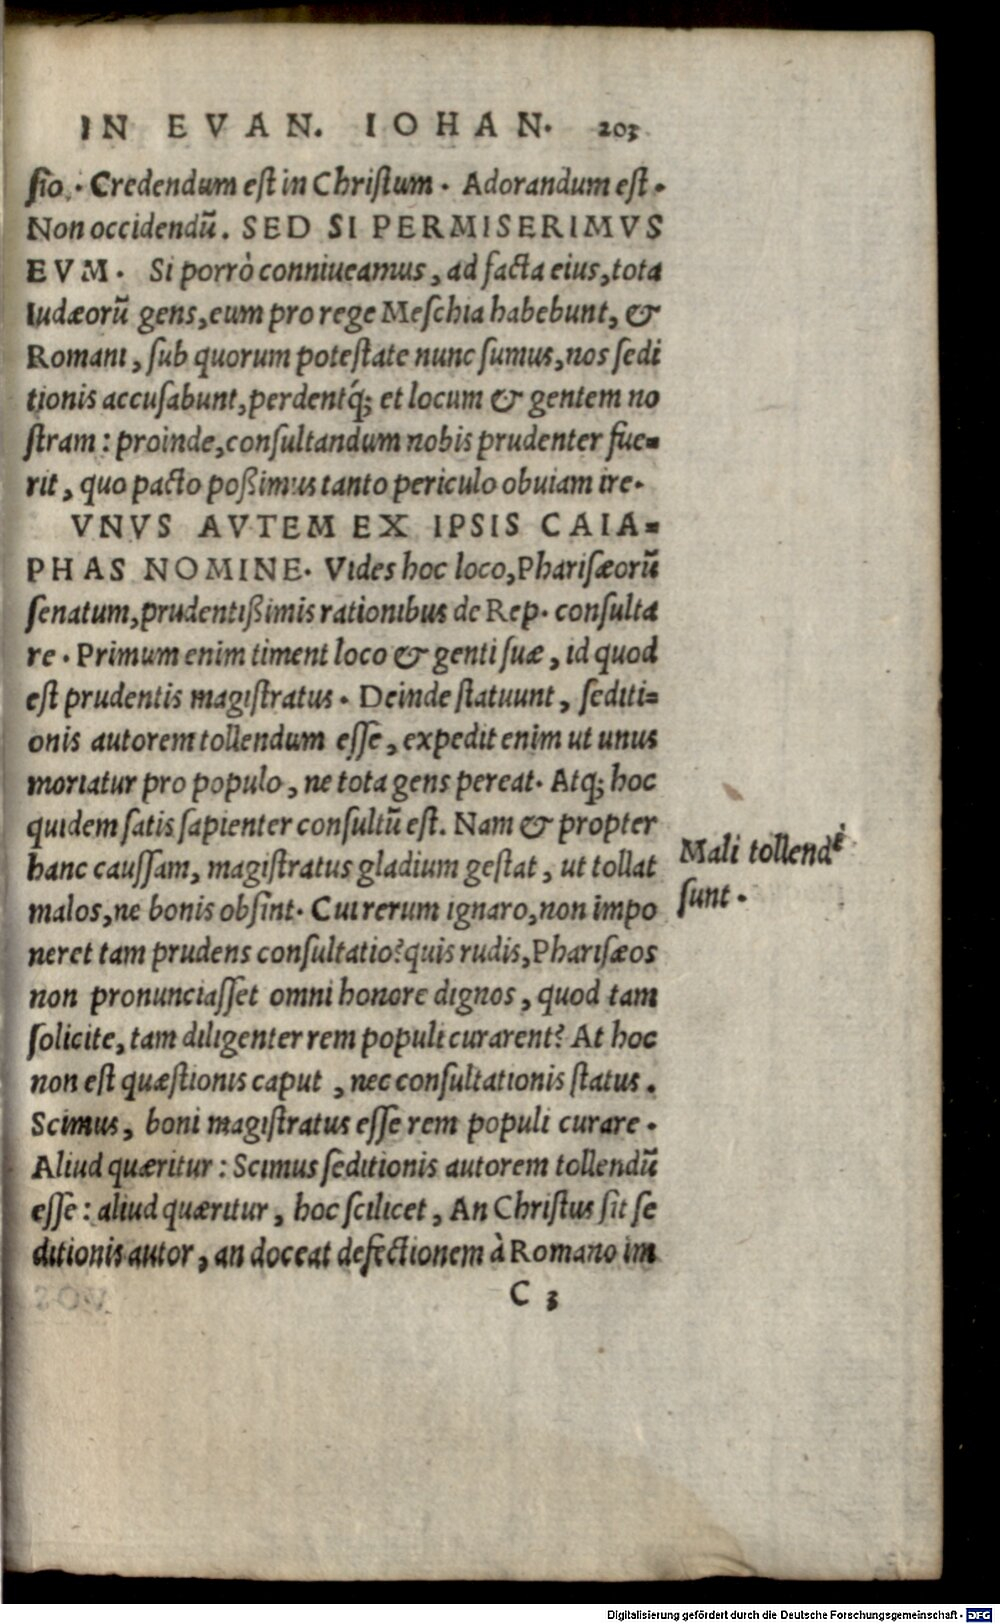 IN EVAN. IOHAN. 203
ſio. Credendum eſt in Chriſtum. Adorandum eſt.
Non occidendū. SED SI PERMISERIMVS
EVM. Si porrò conniueamus, ad facta eius, tota
Iudæorū gens, eum pro rege Meſchia habebunt, &
Romani, ſub quorum poteſtate nunc ſumus, nos ſedi
tionis accuſabunt, perdentq́; et locum & gentem no
ſtram: proinde, conſultandum nobis prudenter fue=
rit, quo pacto poßimus tanto periculo obuiam ire.
VNVS AVTEM EX IPSIS CAIA=
PHAS NOMINE. Vides hoc loco, Phariſæorū
ſenatum, prudentißimis rationibus de Rep. conſulta
re. Primum enim timent loco & genti ſuæ, id quod
eſt prudentis magiſtratus. Deinde ſtatuunt, ſediti=
onis autorem tollendum eſſe, expedit enim ut unus
moriatur pro populo, ne tota gens pereat. Atq; hoc
quidem ſatis ſapienter conſultū eſt. Nam & propter
hanc cauſſam, magiſtratus gladium geſtat, ut tollat
malos, ne bonis obſint. Cui rerum ignaro, non impo
neret tam prudens conſultatio? quis rudis, Phariſæos
non pronunciaſſet omni honore dignos, quod tam
ſolicite, tam diligenter rem populi curarent? At hoc
non eſt quæſtionis caput, nec conſultationis ſtatus.
Scimus, boni magiſtratus eſſe rem populi curare.
Aliud quæritur: Scimus ſeditionis autorem tollendū
eſſe: aliud quæritur, hoc ſcilicet, An Chriſtus ſit ſe
ditionis autor, an doceat defectionem à Romano im
C 3
Mali tollendi
ſunt.
Digitalisierung gefördert durch die Deutsche Forschungsgemeinschaft - DFG